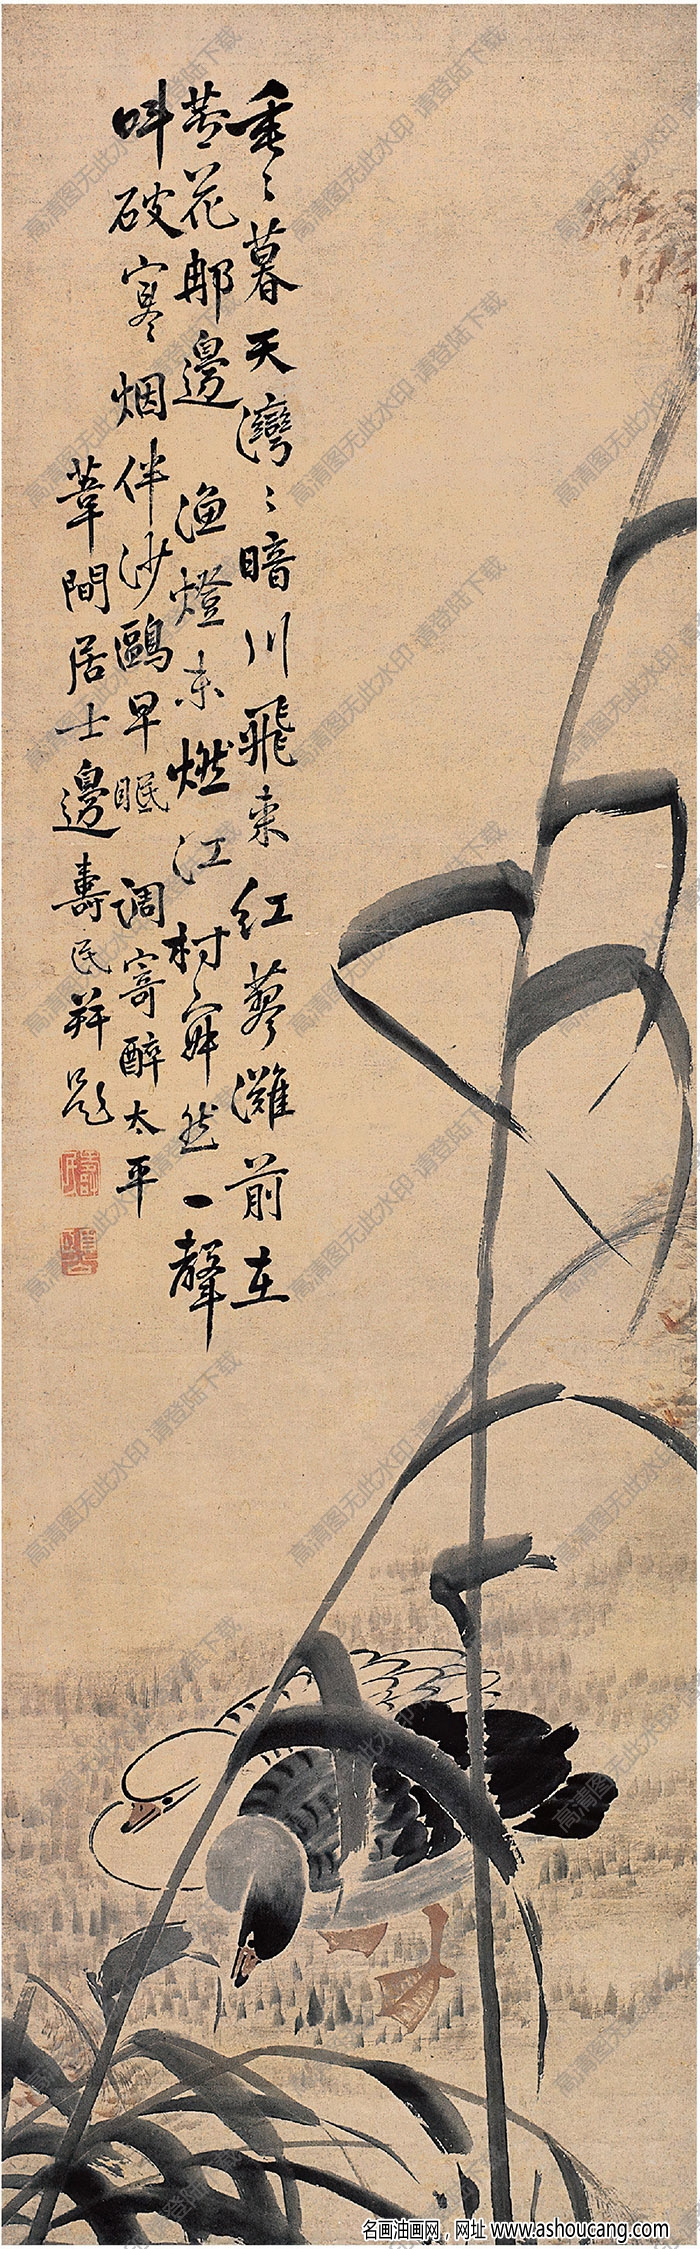 垂〻暮天灣〻暗川飛来红蓼灘前在
芦花那邊 渔燈未燃江村寂然一聲
叫破寒烟伴沙鷗早眠 调寄醉太平
葦間居士邊壽民并題
壽民
頤公
高清图无此水印 请登陆下载
名画油画网，网址 www.ashoucang.com